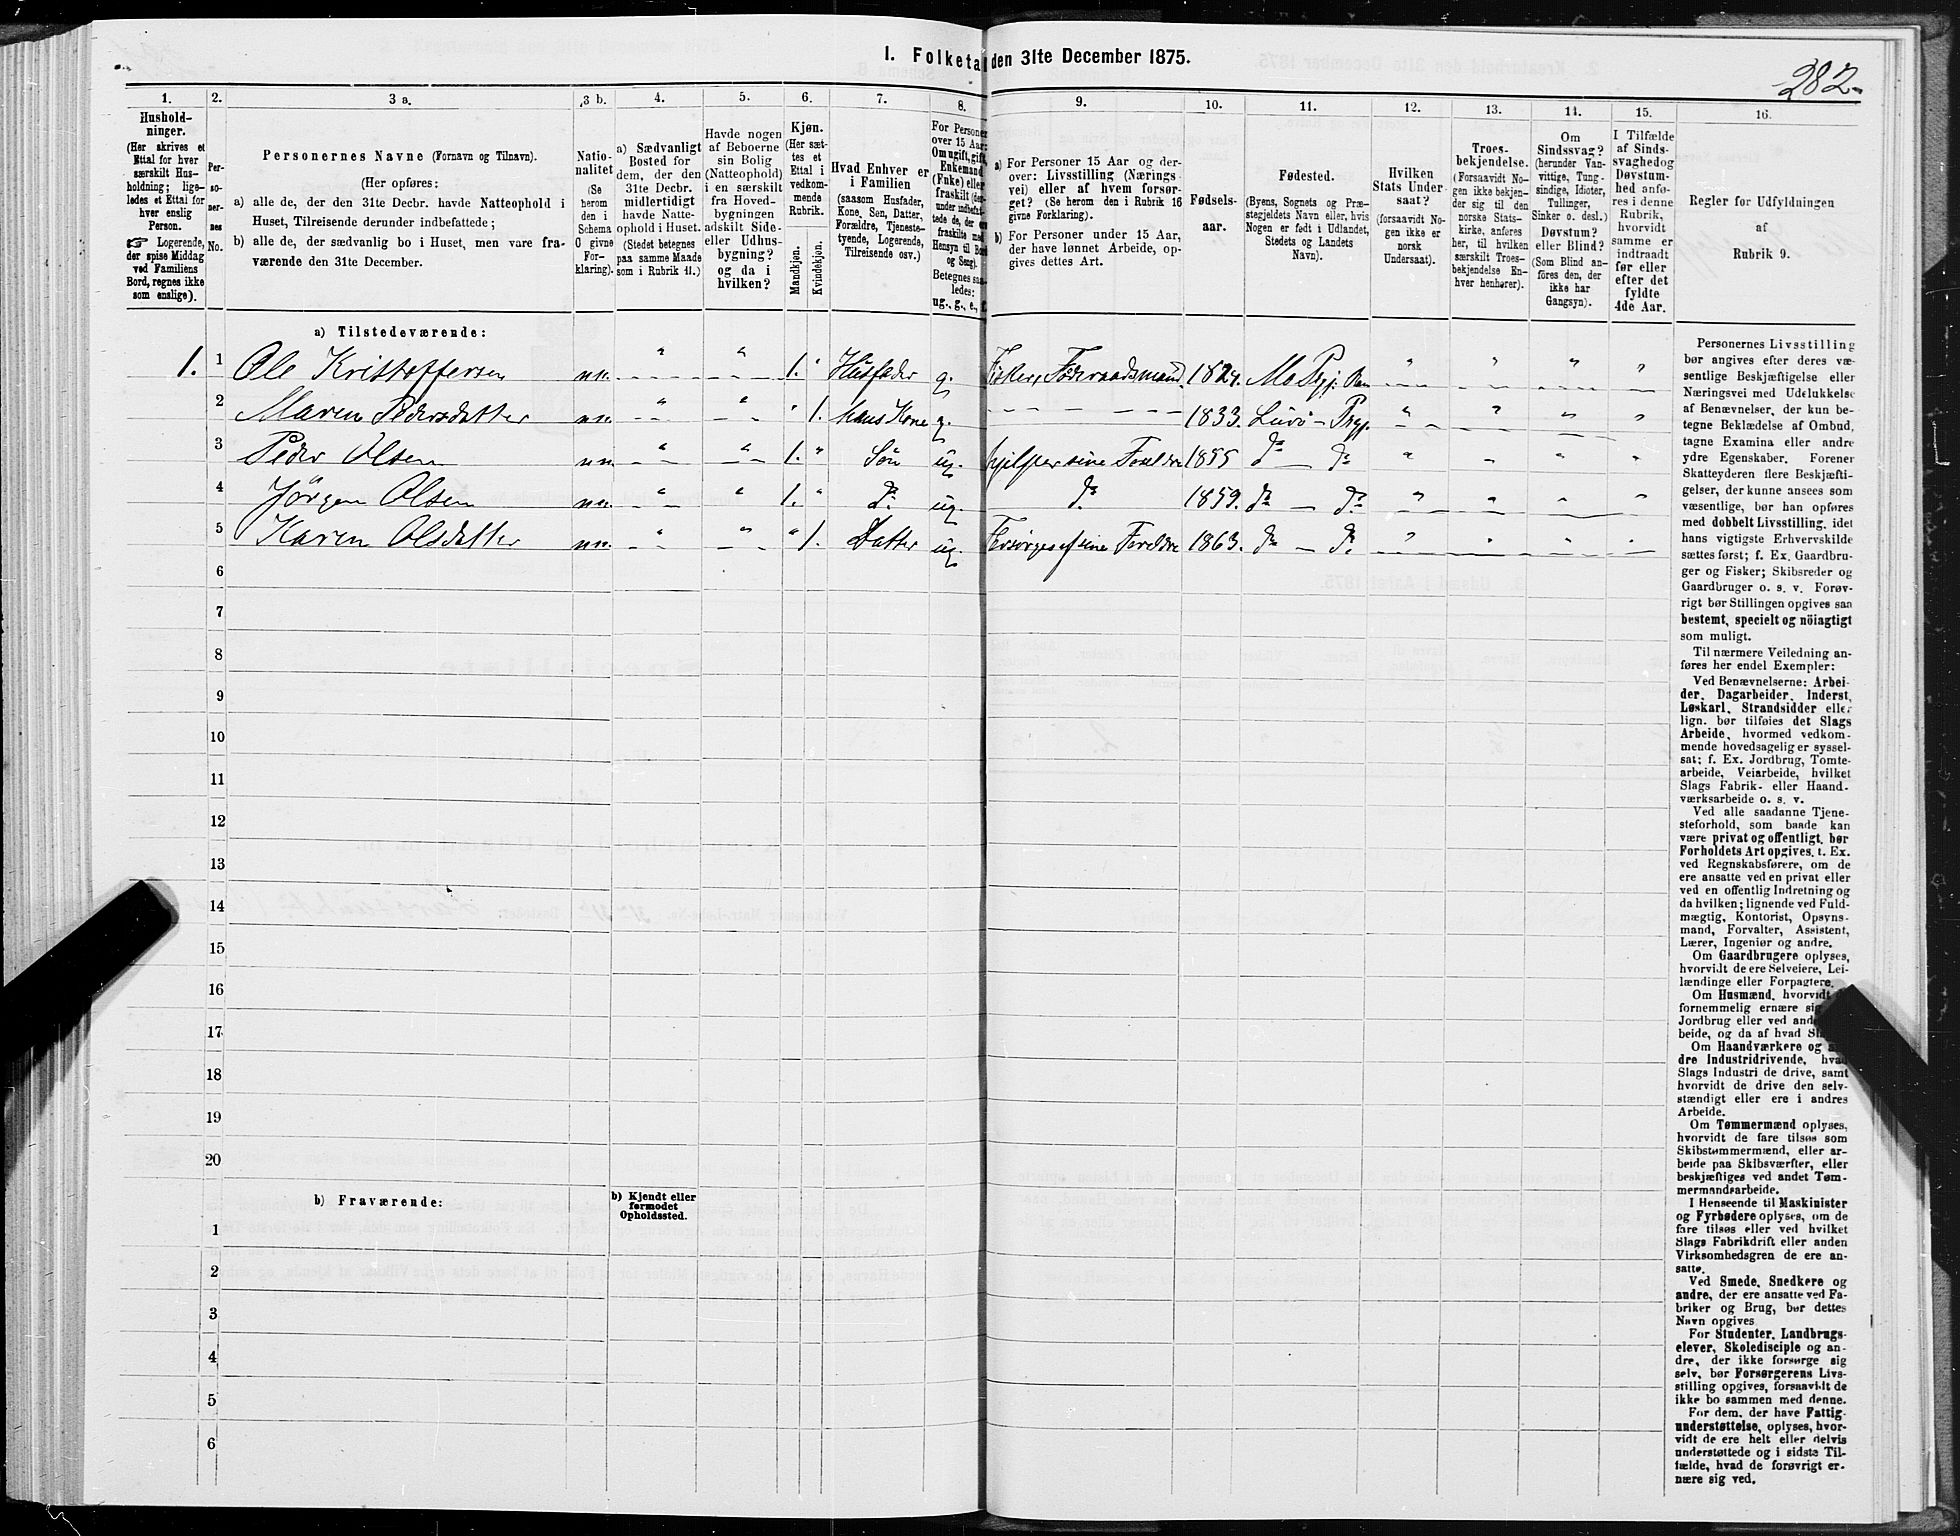 I. Folketa den 31te December 1875.
282.
1. 2. 3 a. 3 b. 4. 5. 6. 7. 8. 9. 10. 11. 12. 13. 14. 15. 16.
Hushold-
ninger.
(Her skrives et
Ettal for hver
særskilt Hus-
holdning; lige-
ledes et Ettal for
hver enslig
Person.
☞ Logerende,
der spise Middag
ved Familiens
Bord, regnes ikke
som enslige).
Per-
so-
ner-
nes
No.
Personernes Navne (Fornavn og Tilnavn).
(Her opføres:
a) alle de, der den 31te Decbr. havde Natteophold i
Huset, Tilreisende derunder indbefattede;
b) alle de, der sædvanlig bo i Huset, men vare fra-
værende den 31te December.
Natio-
nalitet
(Se
herom
den i
Schema
O givne
For-
klaring).
a) Sædvanligt
Bosted for
dem, der den
31te Decbr.
midlertidigt
havde Natte-
ophold i Huset.
(Stedet betegnes
paa samme Maade
som i Rubrik 11.)
Havde nogen
af Beboerne
sin Bolig
(Natteophold)
i en særskilt
fra Hoved-
bygningen
adskilt Side-
eller Udhus-
bygning?
og da i
hvilken?
Kjøn.
(Her sæt-
tes et
Ettal i
vedkom-
mende
Rubrik.
Mandkjøn.
Kvindekjøn.
Hvad Enhver er
i Familien
(saasom Husfader,
Kone, Søn, Datter,
Forældre, Tjeneste-
tyende, Logerende,
Tilreisende osv.)
For Personer
over 15 Aar:
Om ugift, gift,
Enkemand
(Enke) eller
fraskilt (der-
under indbefat-
tede de, der ere
fraskilte med
Hensyn til Bord
og Seng).
Betegnes saa-
ledes:
ug., g., e., f.
a) For Personer 15 Aar og der-
over: Livsstilling (Nærings-
vei) eller af hvem forsør-
get? (Se herom den i Rubrik 16
givne Forklaring).
b) For Personer under 15 Aar,
der have lønnet Arbeide, op-
gives dettes Art.
Fødsels-
aar.
Fødested.
(Byens, Sognets og Præ-
stegjeldets Navn eller, hvis
Nogen er født i Udlandet,
Stedets og Landets
Navn).
Hvilken
Stats Under-
saat?
(forsaavidt No-
gen ikke er
norsk
Undersaat).
Troes-
bekjendelse.
(Forsaavidt No-
gen ikke bekjen-
der sig til den
norske Stats-
kirke, anføres
her, til hvilken
særskilt Troes-
bekjendelse En-
hver henhører).
Om
Sindssvag?
(herunder Van-
vittige, Tung-
sindige, Idioter,
Tullinger,
Sinker o. desl.)
Døvstum?
eller Blind?
(Som Blind an-
føres den, der
ikke har
Gangsyn).
I Tilfælde
af Sinds-
svaghedog
Døvstum-
hed anfø-
res i denne
Rubrik,
hvorvidt
samme er
indtraadt
før eller
efter det
fyldte
4de Aar.
Regler for Udfyldningen
af
Rubrik 9.
a) Tilstedeværende:
1. 1 Ole Kristoffersen nn. " " 1. " Husfader g. Fisker, Föderaadsmand. 1824. Mo Pgj. " " " "
2 Maren Pedersdatter nn. " " " 1. hans Kone g. 1833. Lurö - Pgj. " " " "
3 Peder Olsen nn. " " 1. " Sön ug. hjelper sine Foreldre 1855 do - do " " " "
4 Jörgen Olsen nn. " " 1. " do ug. do 1859. do - do " " " "
5 Karen Olsdatter nn. " " " 1. Datter ug. Forsörges af sine Foreldre 1863. do - do " " " "
6
7
8
9
10
11
12
13
14
15
16
17
18
19
20
b) Fraværende:
b) Kjendt eller
formodet
Opholdssted.
1
2
3
4
5
6
Personernes Livsstilling
bør angives efter deres væ-
sentlige Beskjæftigelse eller
Næringsvei med Udelukkelse
af Benævnelser, der kun be-
tegne Beklædelse af Ombud,
tagne Examina eller andre
ydre Egenskaber. Forener
Skatteyderen flere Beskjæfti-
gelser, der kunne ansees som
væsentlige, bør han opføres
med dobbelt Livsstilling, idet
hans vigtigste Erhvervskilde
sættes først; f. Ex. Gaardbru-
ger og Fisker; Skibsreder og
Gaardbruger o. s. v. Forøv-
rigt bør Stillingen opgives saa
bestemt, specielt og nöiagtigt
som muligt.
Til nærmere Veiledning an-
føres her endel Exempler:
Ved Benævnelserne: Arbei-
der, Dagarbeider, Inderst,
Løskarl, Strandsidder eller
lign. bør tilføies det Slags
Arbeide, hvormed vedkom-
mende hovedsagelig er syssel-
sat; f. Ex. Jordbrug, Tomte-
arbeide, Veiarbeide, hvilket
Slags Fabrik- eller Haand-
værksarbeide o. s. v.
Ved alle saadanne Tjene-
steforhold, som baade kan
være privat og offentligt, bør
Forholdets Art opgives, t. Ex.
ved Regnskabsførere, om de
ere ansatte ved en privat eller
ved en offentlig Indretning og
da hvilken; lignende ved Fuld-
mægtig, Kontorist, Opsyns-
mand, Forvalter, Assistent,
Lærer, Ingeniør og andre.
Om Gaardbrugere oplyses,
hvorvidt de ere Selveiere, Lei-
lændinge eller Forpagtere.
Om Husmænd, hvorvidt
fornemmelig ernære sig
Jordbrug eller ved and
beide, og da af hvad Sl
Om Haandværkere og
dre Industridrivende, hvad
Slags Industri de drive, samt
hvorvidt de drive den selv-
stændigt eller ere i andres
Arbeide.
Om Tømmermænd oplyses,
hvorvidt de fare tilsøs som
Skibstømmermænd, eller ar-
beide paa Skibsværfter, eller
beskjæftiges ved andet Tøm-
mermandsarbeide.
I Henseende til Maskinister
og Fyrbødere oplyses, om de
fare tilsøs eller ved hvilket
Slags Fabrikdrift eller anden
Virksomhedsgren de ere an-
satte.
Ved Smede, Snedkere og
andre, der ere ansatte ved Fa-
briker og Brug, bør dettes
Navn opgives
For Studenter, Landbrugs-
elever, Skoledisciple og an-
dre, der ikke forsørge sig
selv, bør Forsørgerens Livs-
stilling opgives, forsaavidt de
ikke bo sammen med denne.
For dem, der have Fattig-
understøttelse, oplyses, hvor-
vidt de ere helt eller delvis
understøttede og i sidste Til-
fælde, hvad de forøvrigt er-
nære sig ved.